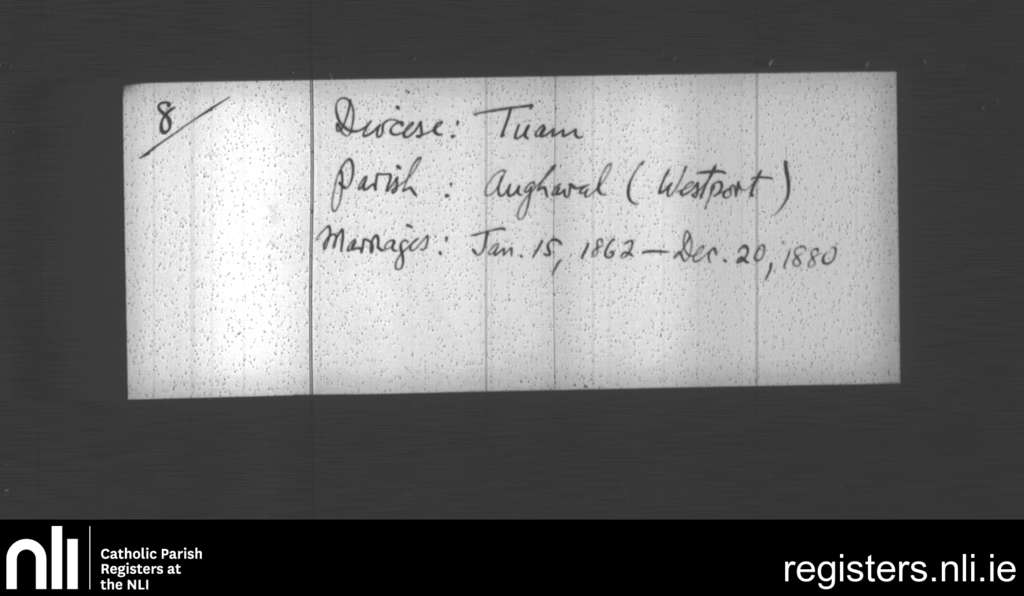 8/
Diocese: Tuam
Parish: Aughaval (Westport)
Marriages: Jan. 15, 1862 – Dec. 20, 1880
nli
Catholic Parish
Registers at
the NLI
registers.nli.ie